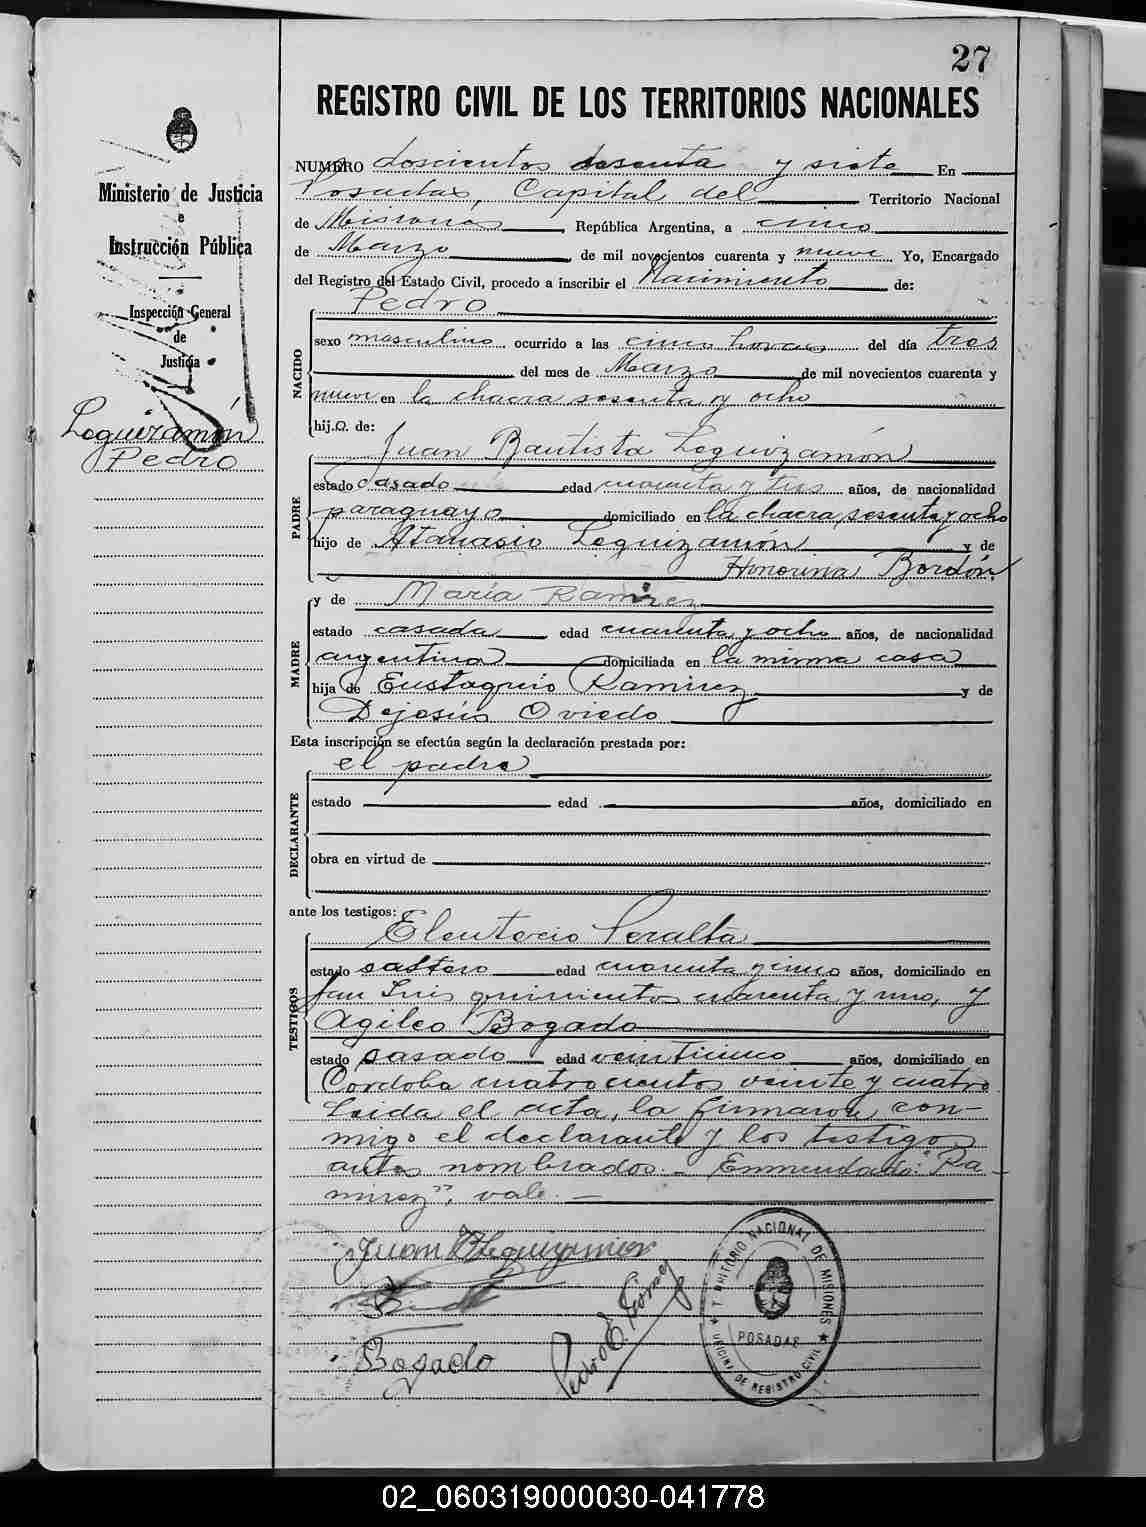 27
REGISTRO CIVIL DE LOS TERRITORIOS NACIONALES
Ministerio de Justicia
e
Instrucción Pública
Inspección General
de
Justicia
Leguizamón
Pedro
NUMERO doscientos sesenta y siete En
Posadas, Capital del Territorio Nacional
de Misiones, República Argentina, a cinco
de Marzo de mil novecientos cuarenta y nueve Yo, Encargado
del Registro del Estado Civil, procedo a inscribir el Nacimiento de:
Pedro
NACIDO
sexo masculino ocurrido a las cinco horas del día tres
del mes de Marzo de mil novecientos cuarenta y
nueve en la chacra sesenta y ocho
hij.o. de:
Juan Bautista Leguizamón
PADRE
estado casado edad cuarenta y tres años, de nacionalidad
paraguayo domiciliado en la chacra sesenta y ocho
hijo de Atanasio Leguizamón y de
Honorina Bordón
y de María Ramirez
MADRE
estado casada edad cuarenta y ocho años, de nacionalidad
argentina domiciliada en la misma casa
hija de Eustaquio Ramirez y de
Dejesús Oviedo
Esta inscripción se efectúa según la declaración prestada por:
el padre
DECLARANTE
estado edad años, domiciliado en
obra en virtud de
ante los testigos:
Eleuterio Peralta
TESTIGOS
estado soltero edad cuarenta y cinco años, domiciliado en
San Luis quinientos cuarenta y uno, y
Agileo Bogado
estado casado edad veinticinco años, domiciliado en
Córdoba cuatrocientos veinte y cuatro
Leida el acta, la firmaron con-
migo el declarante y los testigos
antes nombrados.- Enmendado: "Ra-
mirez", vale.-
Juan B Leguizamon
Bogado
Pedro E. Gomez
TERRITORIO NACIONAL DE MISIONES
POSADAS
OFICINA DE REGISTRO CIVIL
02_060319000030-041778